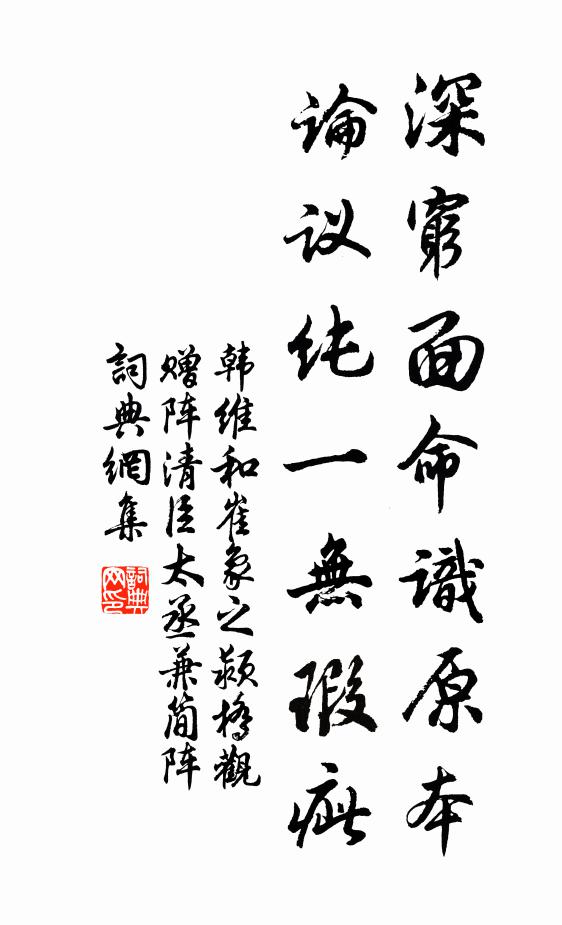 深窮面命識原本
論议纯一無瑕疵
韩维和崔象之颍橋觀
赠阵清臣太丞兼简阵
詞典網集
詞典網印